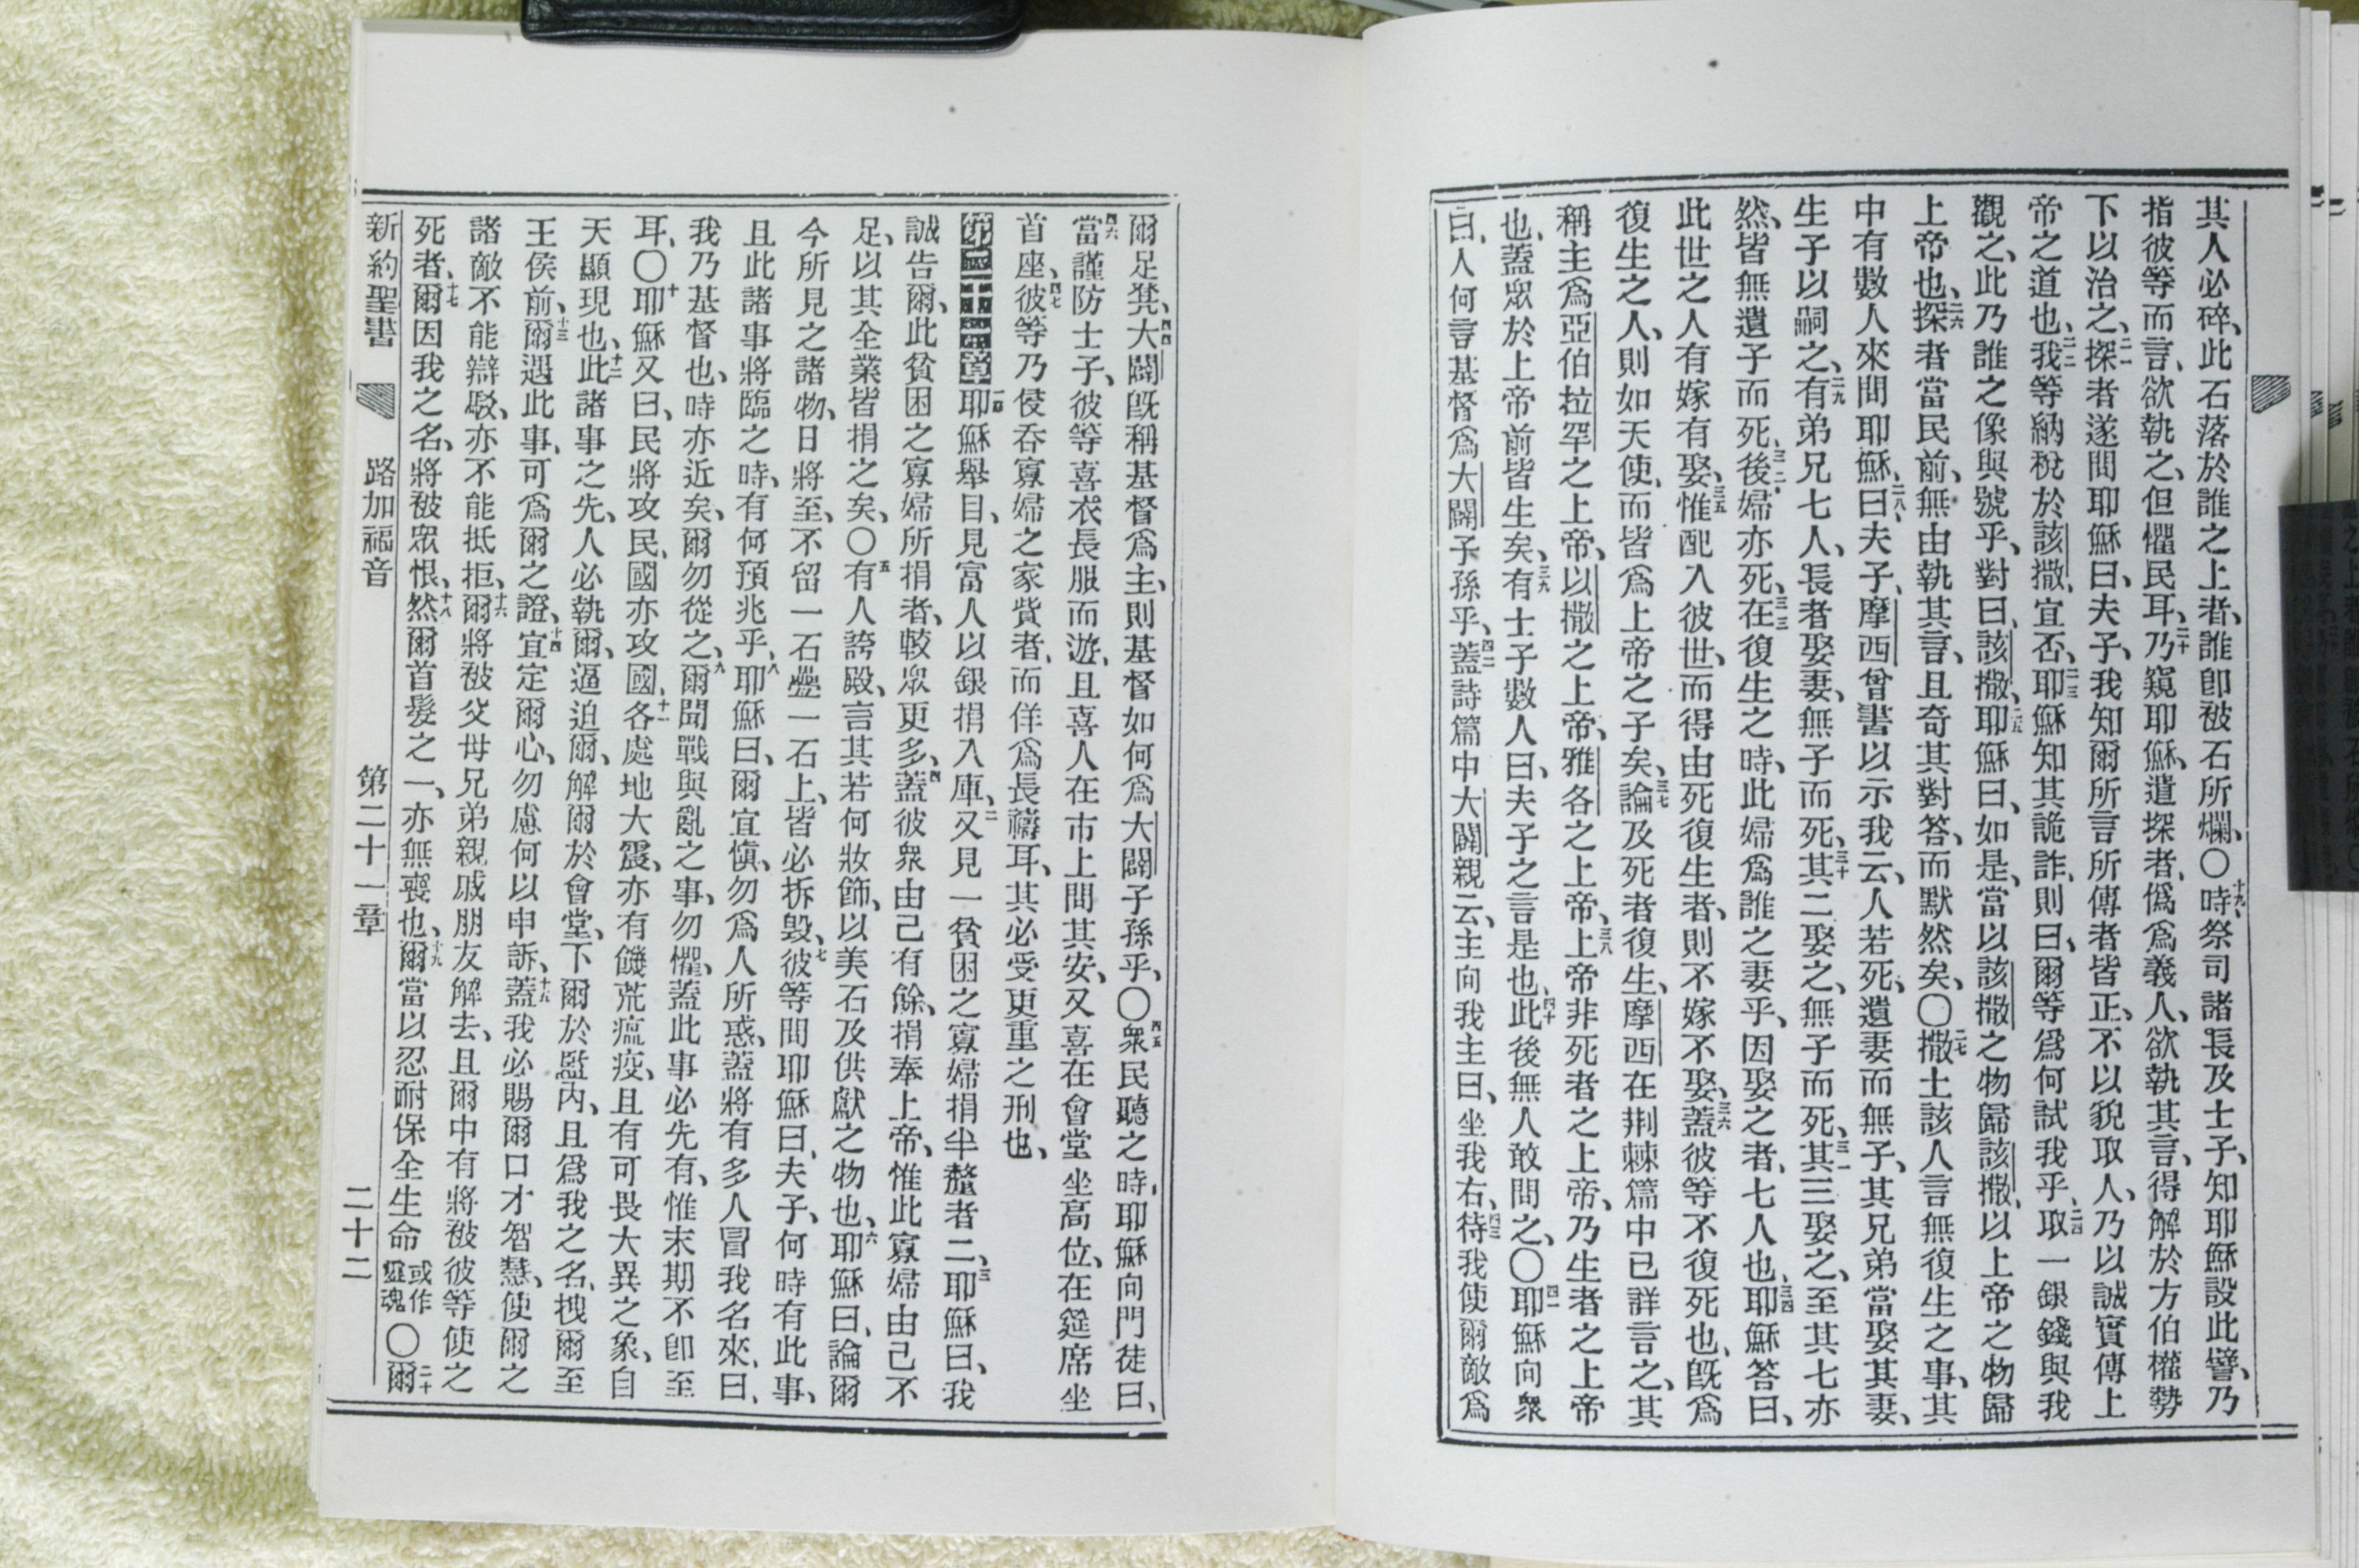 其人必碎、此石落於誰之上者、誰卽被石所爛、〇十九時祭司諸長及士子、知耶穌設此譬、乃
指彼等而言、欲執之、但懼民耳、二十乃窺耶穌、遣探者、僞爲義人、欲執其言、得解於方伯權勢
下以治之、二一探者遂問耶穌曰、夫子、我知爾所言所傳者皆正、不以貌取人、乃以誠實傳上
帝之道也、二二我等納稅於該撒、宜否、二三耶穌知其詭詐、則曰、爾等爲何試我乎、二四取一銀錢與我
觀之、此乃誰之像與號乎、對曰、該撒、二五耶穌曰、如是、當以該撒之物歸該撒、以上帝之物歸
上帝也、二六探者當民前、無由執其言、且奇其對答、而默然矣、〇二七撒土該人言無復生之事、其
中有數人來問耶穌、二八曰、夫子、摩西曾書以示我云、人若死、遺妻而無子、其兄弟當娶其妻、
生子以嗣之、二九有弟兄七人、長者娶妻、無子而死、三十其二娶之、無子而死、三一其三娶之、至其七亦
然、皆無遺子而死、三二後婦亦死、三三在復生之時、此婦爲誰之妻乎、因娶之者、七人也、三四耶穌答曰、
此世之人有嫁有娶、三五惟配入彼世、而得由死復生者、則不嫁不娶、三六蓋彼等不復死也、旣爲
復生之人、則如天使、而皆爲上帝之子矣、三七論及死者復生、摩西在荆棘篇中已詳言之、其
稱主爲亞伯拉罕之上帝、以撒之上帝、雅各之上帝、三八上帝非死者之上帝、乃生者之上帝
也、蓋眾於上帝前皆生矣、三九有士子數人曰、夫子之言是也、四十此後無人敢問之、〇四一耶穌向衆
曰、人何言基督爲大闢子孫乎、四二蓋詩篇中大闢親云、主向我主曰、坐我右、四三待我使爾敵爲
爾足凳、四四大闢旣稱基督爲主、則基督如何爲大闢子孫乎、〇四五衆民聽之時、耶穌向門徒曰、
四六當謹防士子、彼等喜衣長服而遊、且喜人在市上問其安、又喜在會堂坐高位、在筵席坐
首座、四七彼等乃侵吞寡婦之家貲者、而佯爲長禱耳、其必受更重之刑也、
第二十一章一節耶穌舉目、見富人以銀捐入庫、二又見一貧困之寡婦捐半釐者二、三耶穌曰、我
誠告爾、此貧困之寡婦所捐者、較眾更多、四蓋彼衆由己有餘、捐奉上帝、惟此寡婦由己不
足、以其全業皆捐之矣、〇五有人誇殿、言其若何妝飾、以美石及供獻之物也、六耶穌曰、論爾
今所見之諸物、日將至、不留一石疊一石上、皆必拆毀、七彼等問耶穌曰、夫子、何時有此事、
且此諸事將臨之時、有何預兆乎、八耶穌曰、爾宜愼、勿爲人所惑、蓋將有多人冒我名來、曰、
我乃基督也、時亦近矣、爾勿從之、九爾聞戰與亂之事、勿懼、蓋此事必先有、惟末期不卽至
耳、〇十耶穌又曰、民將攻民、國亦攻國、十一各處地大震、亦有饑荒瘟疫、且有可畏大異之象、自
天顯現也、十二此諸事之先、人必執爾、逼迫爾、解爾於會堂、下爾於監內、且爲我之名、拽爾至
王侯前、十三爾遇此事、可爲爾之證、十四宜定爾心、勿慮何以申訴、十五蓋我必賜爾口才智慧、使爾之
諸敵不能辯駁、亦不能抵拒、十六爾將被父母兄弟親戚朋友解去、且爾中有將被彼等使之
死者、十七爾因我之名、將被眾恨、十八然爾首髮之一、亦無喪也、十九爾當以忍耐保全生命或作靈魂〇二十爾
新約聖書 路加福音 第二十一章 二十二